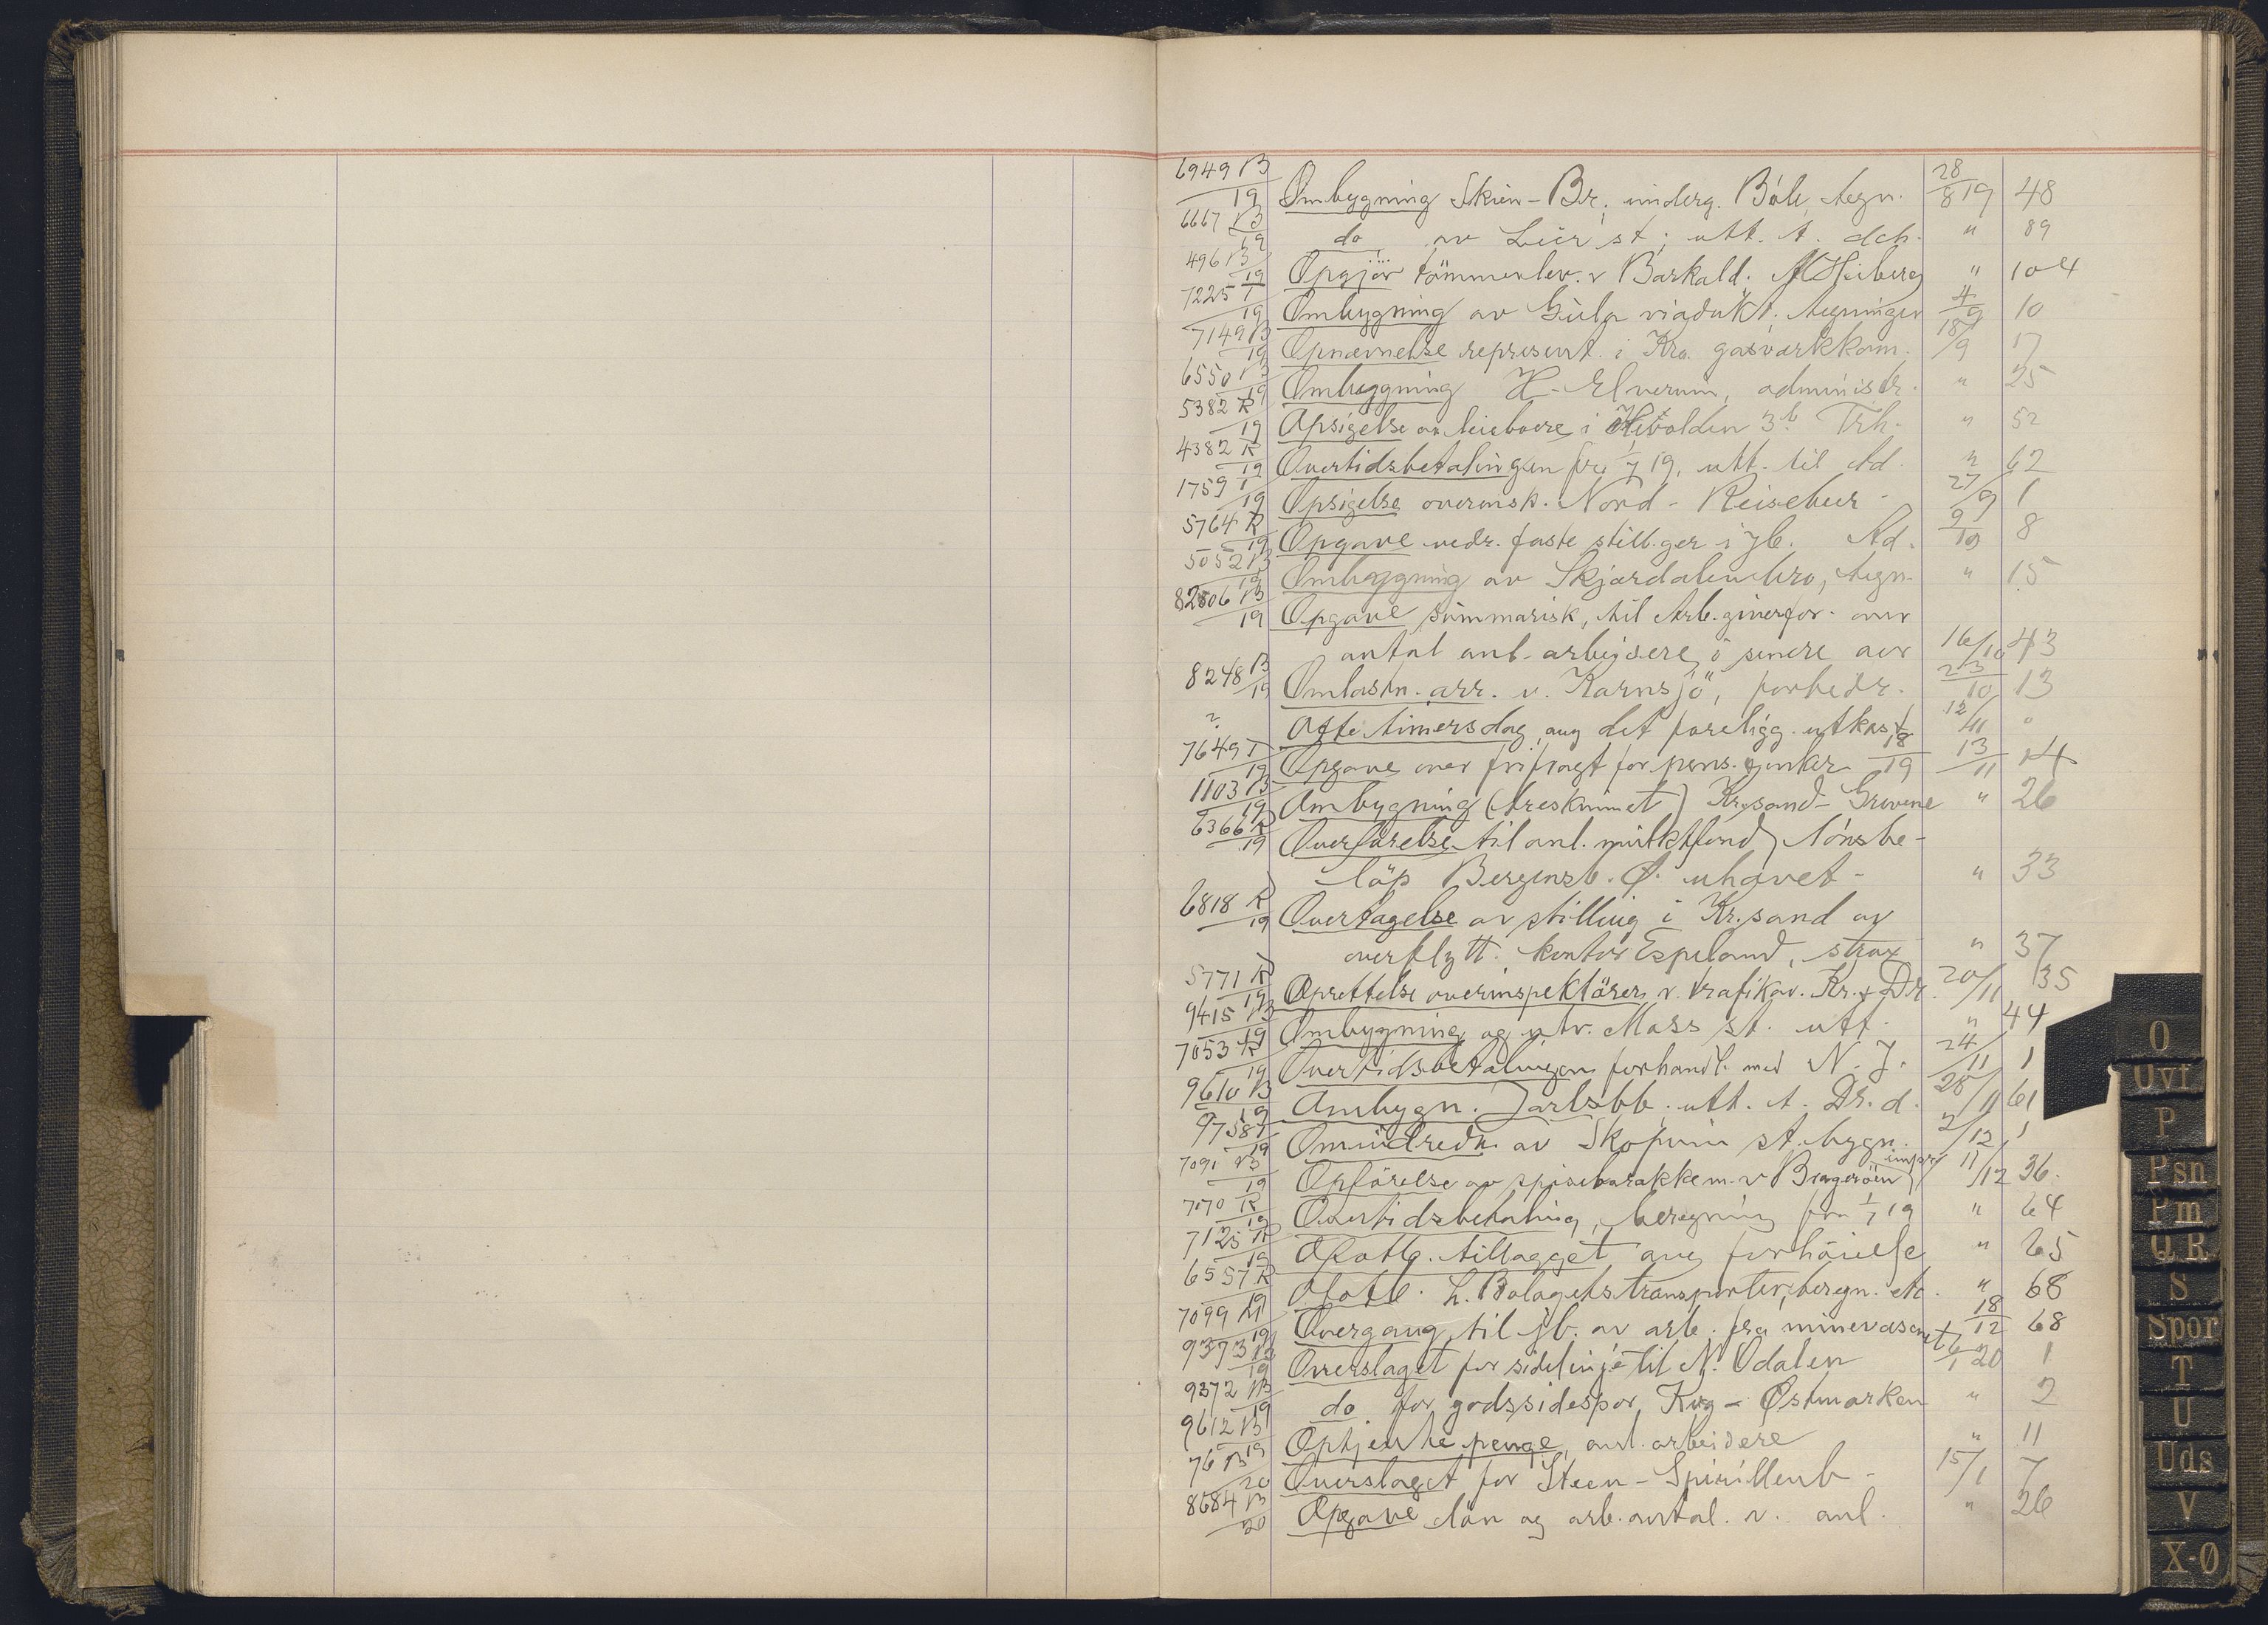 6949 B/19 Ombygning Skien-Br., underg. Böle, tegn. 28/8 19 48
6667 B/19 do av Lier st; utt. t. dch. " 89
496 B/19 Opgjör tömmerlev. v Barkald. Heiberg " 104
7225 T/19 Ombygning av Gula viadukt, tegninger 4/9 10
7149 B/19 Opnævnelse represent. i Kra. gasverkkom. 18/9 17
6550 B/19 Ombygging H-Elverum, administr. " 25
5382 R/19 Opsigelse av leieboere i 3b Trh. " 52
4382 R/19 Overtidsbetalingen fra 1/7 19, utt. til Ad. " 62
1759 T/19 Opsigelse overinsk. Nord- Reisebur- 27/9 1
5764 R/19 Opgave vedr. faste still.ger i jb. Ad. 9/10 8
5052 B/19 Ombygging av Skjærdalen bro, tegn. " 15
82806 B/19 Opgave summarisk, til Arb.giverfor. over
antal anl. arbeidere, ö senere avr 16/10 43
8248 B/19 Omlastn. arr. v. Kornsjö, forbedr. 23/10 13
? Otte timersdag ang det foreligg. utkast 12/11 0
7649 T/19 Opgave over frifragt for pens. 18/19 13/11 14
1103 B/19 Ombygning (treskinnet) Kr.sand-Grovene " 26
6366 R/19 Overförelse til anl. mulktfond, lönsbe-
löp Bergensb. Ø. uhævet- " 33
6818 R/19 Overtagelse av stilling i Kr.sand av
overflytt. kontor Espeland, strax " 37
5771 R/19 Oprettelse overinspektörer v. trafikav. Kr. & Dr. 20/11 135
9415 B/19 Ombygning og utv. Moss st. utt. " 44
7053 R/19 Overtidsbetalingen forhandl. med N. J. 24/11 1
9610 B/19 Ombygn. Jarlsbb. utt. t. Dr. d. 28/11 61
9758 T/19 Omindredn. av Skopum st. bygn. 2/12 1
7091 B/19 Opförelse av spisebarakke m.v Bragerøen 11/12 36
7070 R/19 Overtidsbetaling, beregning fra 1/7 19 " 64
7125 R/19 Ofotb. tillægget ang forhöielse " 65
6557 R/19 Ofotb. L. Bolagets transporter, beregn. etc. " 68
7099 M/19 Overgang til jb. av arb. fra minevæsenet 18/12 68
9373 B/19 Overslaget for sidelinje til N. Odalen 6/1 20 1
9372 B/19 do for godssidespor Kvg- Østmarken " 2
9612 B/19 Optjente penge, anl. arbeidere " 11
76 B/20 Overslaget for Steen-Spirillenb- 15/1 7
8684 B/20 Opgave lön og arb.antal. v. anl. " 26
O
Ovf
P
Psn
Pm
Q R
S
Spor
T
U
Uds
V
X-Ø